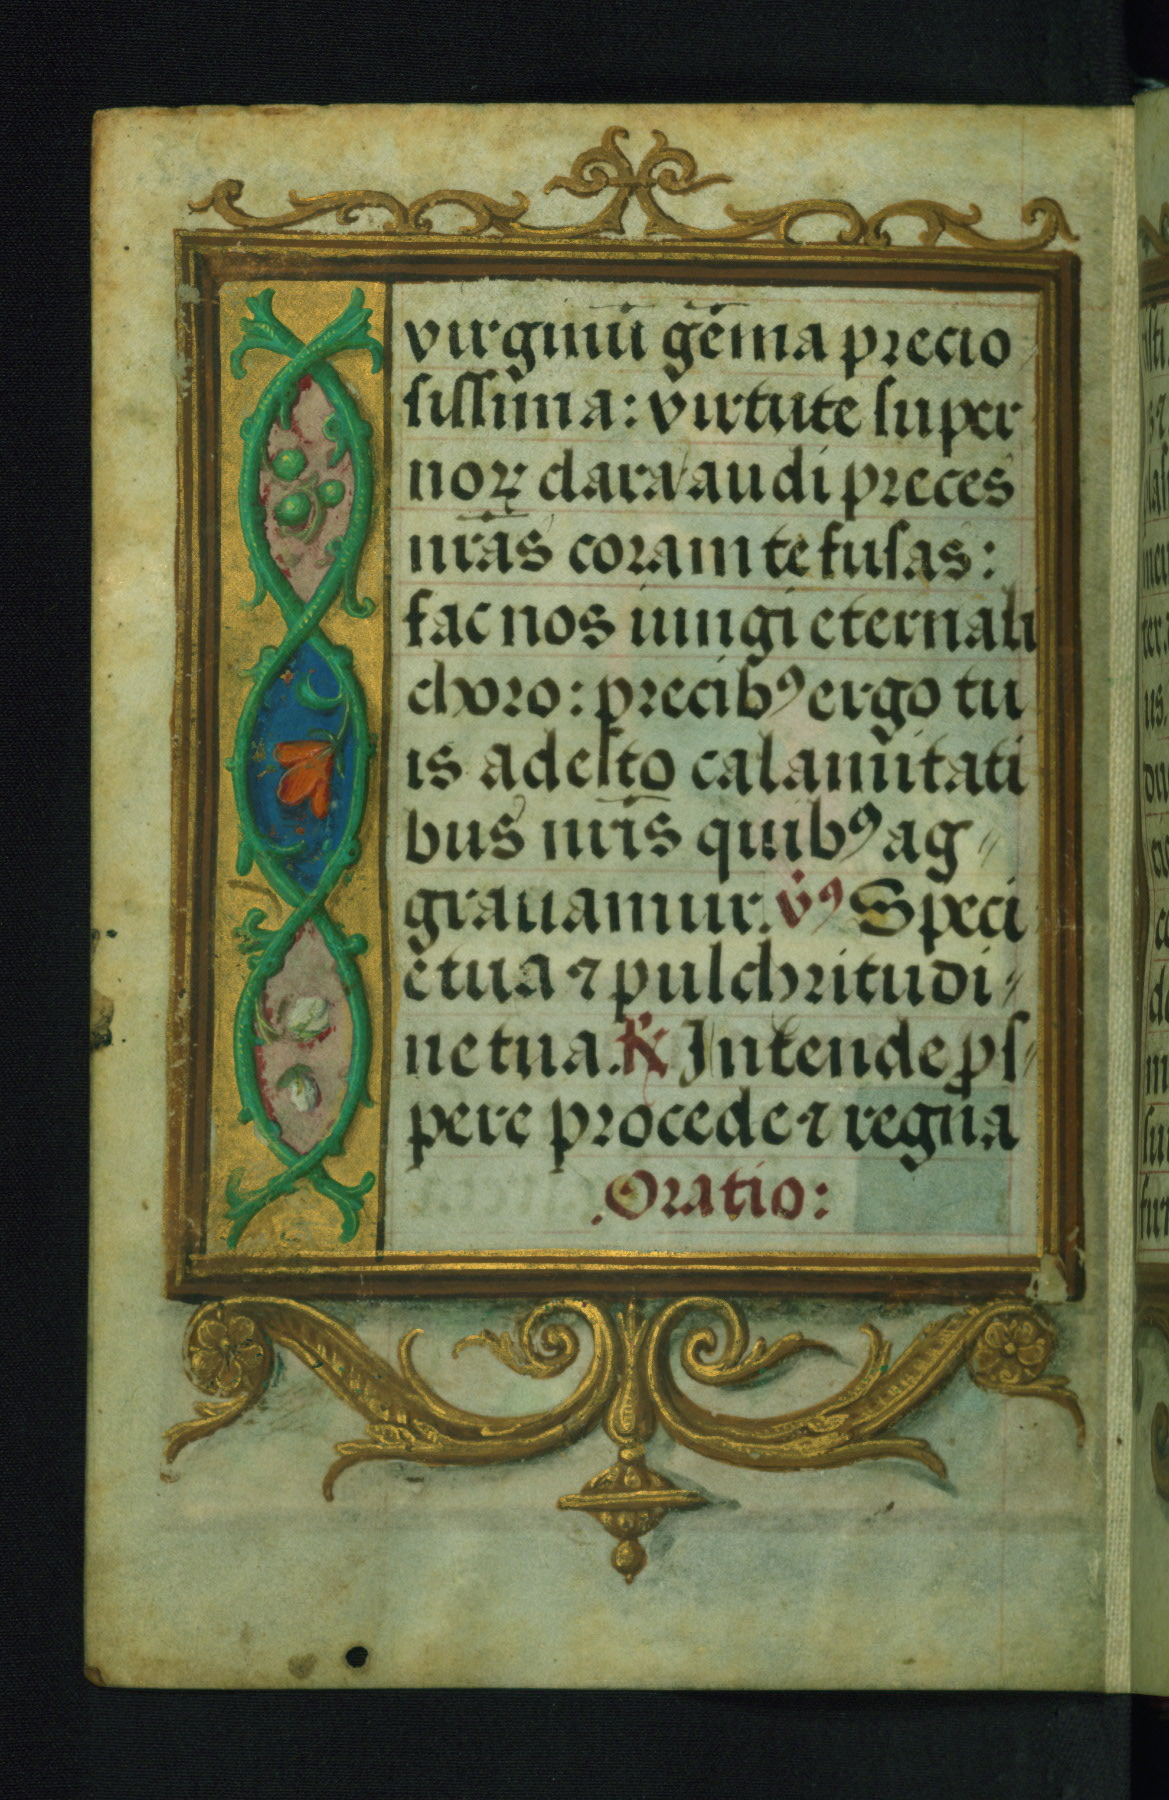 virginū gēma precio
sissima: virtute super
noꝝ clara audi preces
nr̄as coram te fusas:
fac nos iungi eternali
choro: precibꝰ ergo tu
is adesto calamitati
bus nr̄is quibꝰ ag〃
grauamur. v̾ꝰ Speci
e tua ⁊ pulchritudi〃
ne tua. ℟ Intende ꝓs〃
pere procede ⁊ regna
.Oratio: